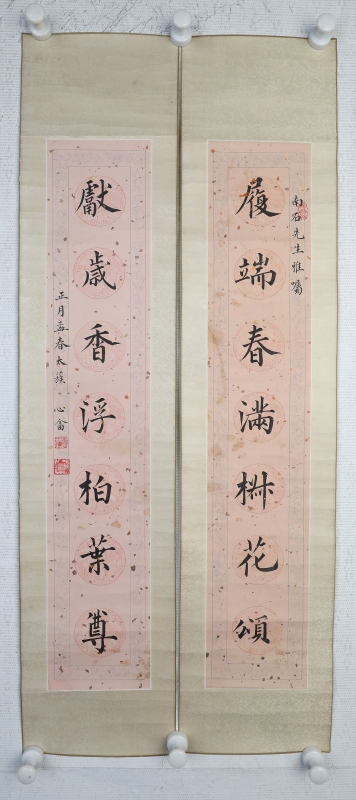 南石先生雅嘱
履端春满椒花頌
獻歲香浮柏葉尊
正月孟春太蔟
心畬